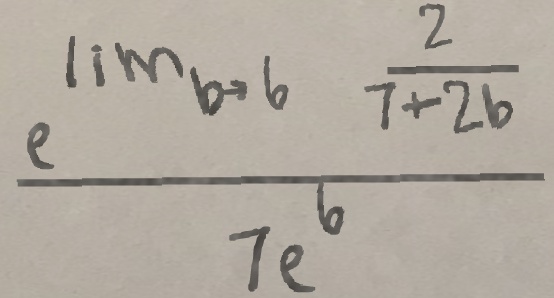 e^{\lim_{b \to 6} \frac{2}{7+2b}}
7e^{6}